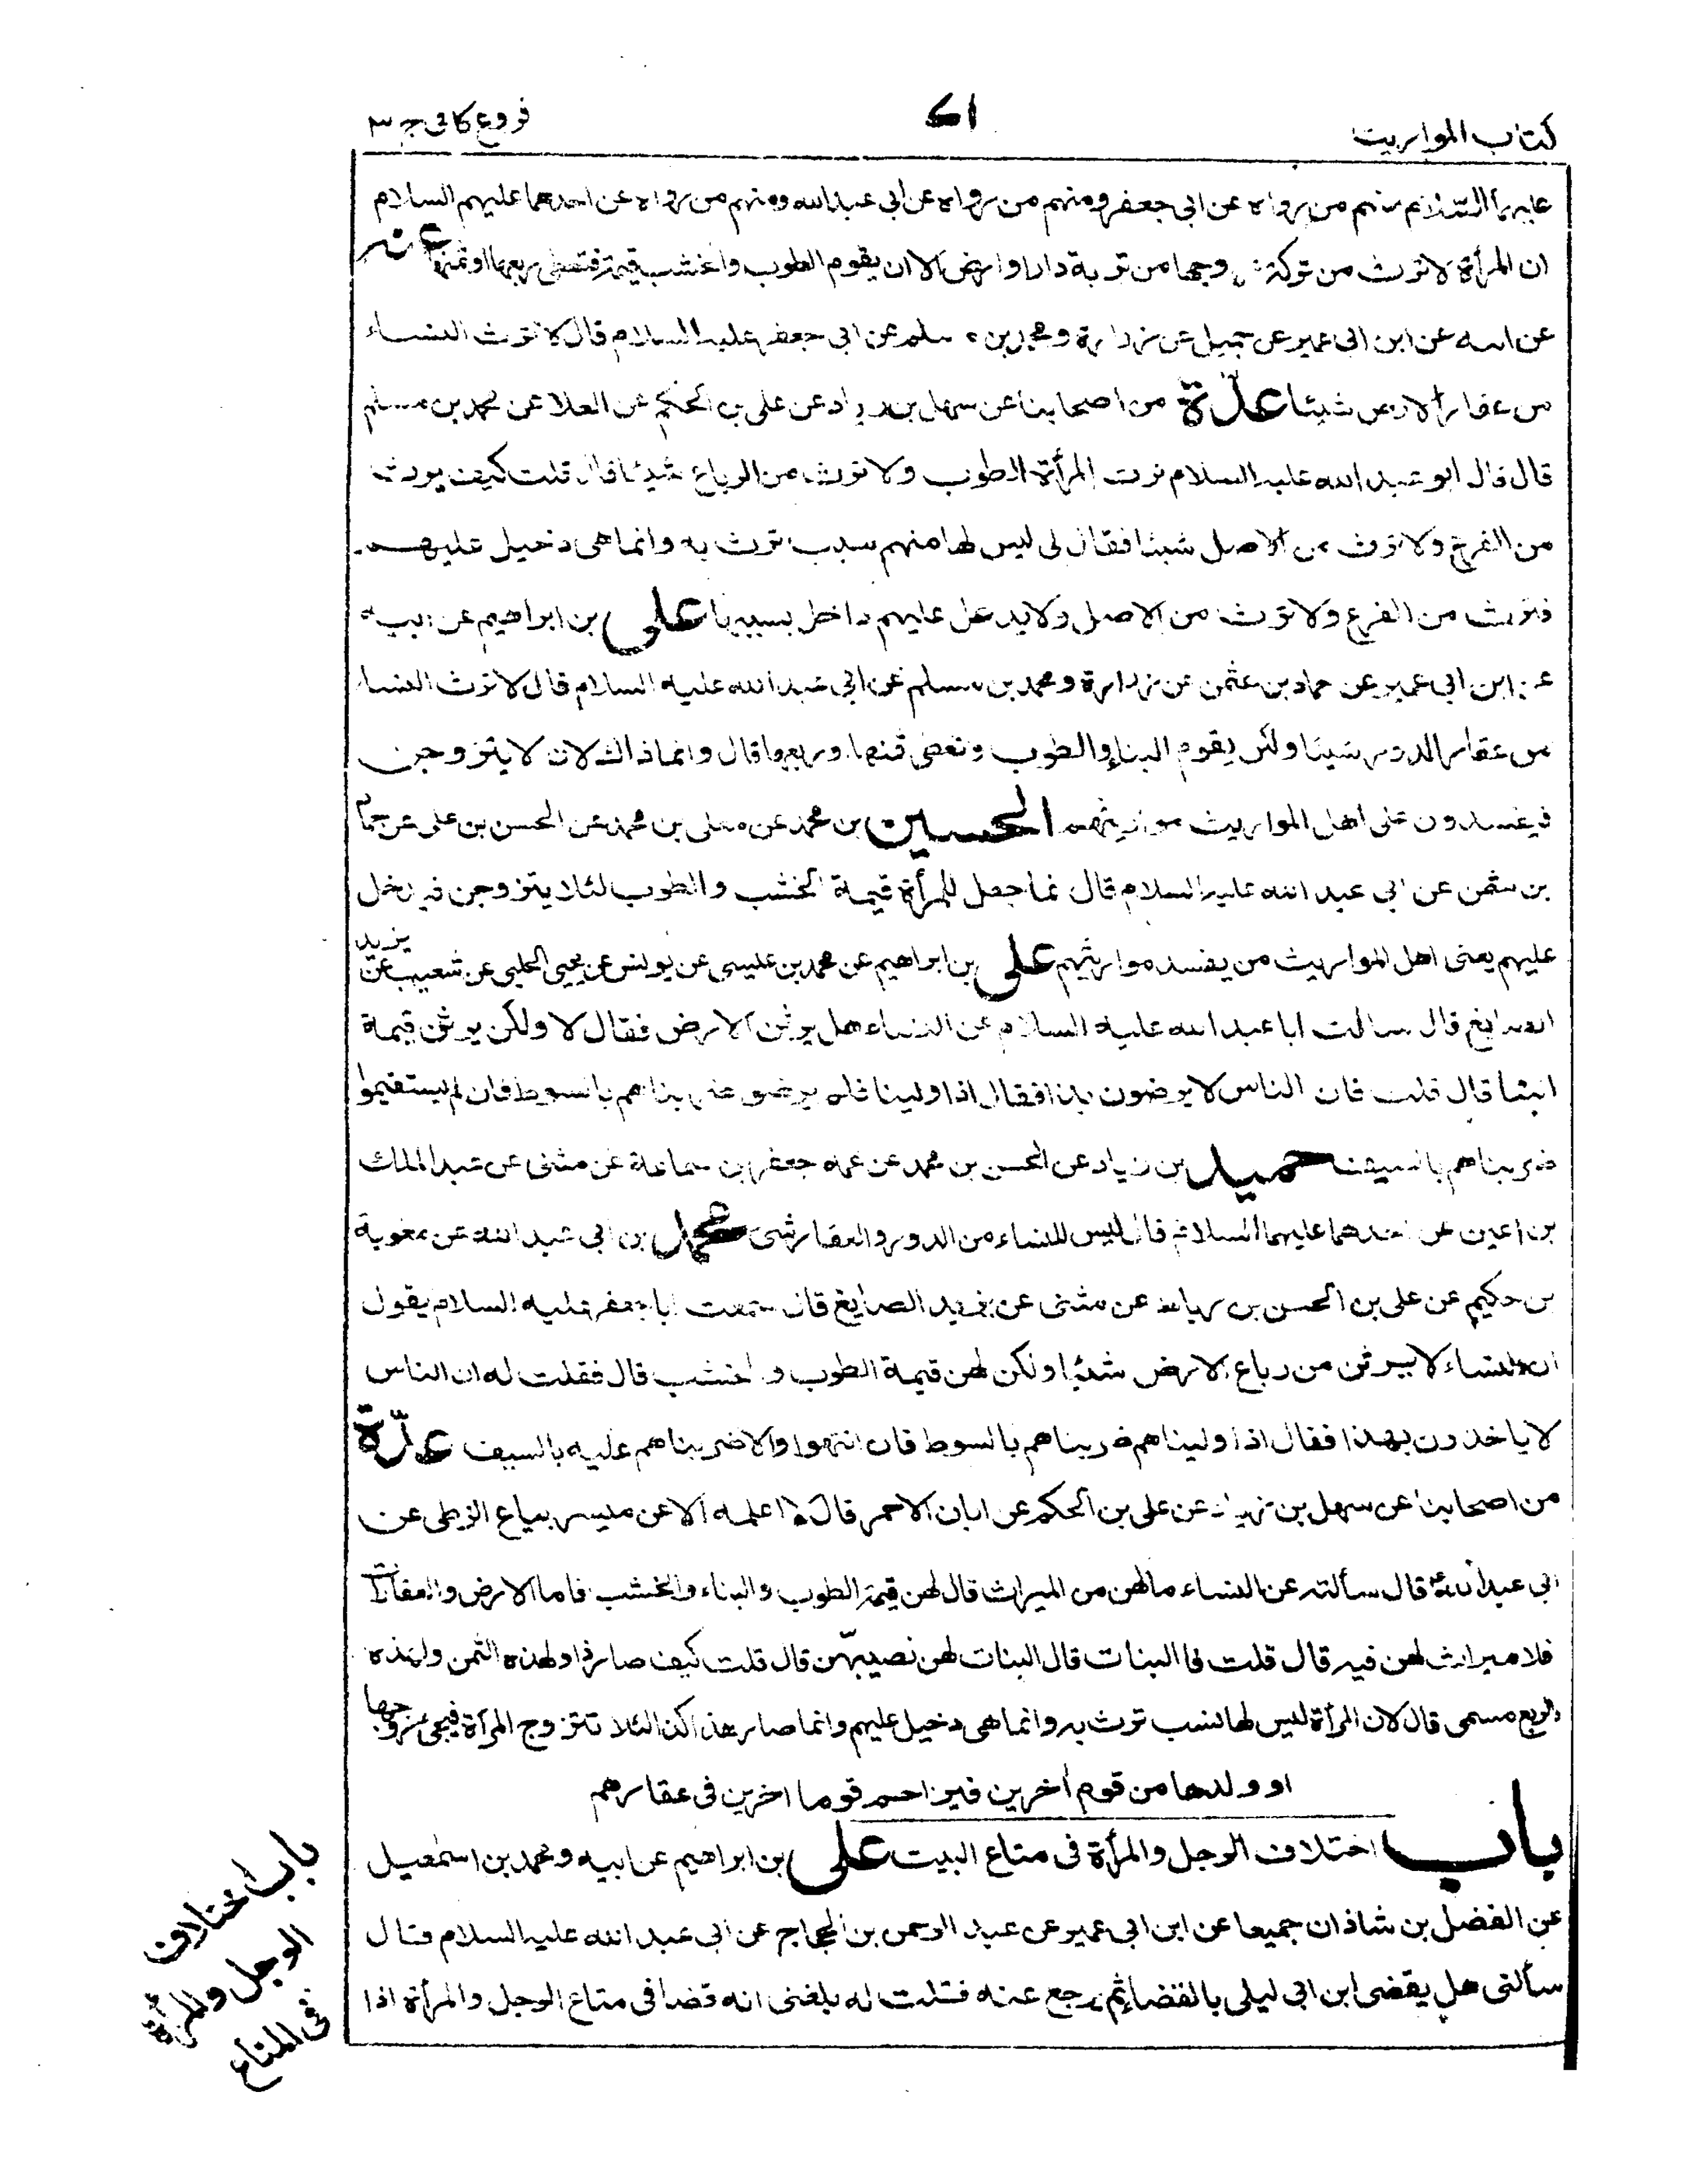 كتاب المواريث
فروع كافى ج ٣
عليهما السلام منهم من رواه عن ابى جعفر ومنهم من رواه عن ابى عبد الله ومنهم من رواه عن احدهما عليهم السلام
ان المرأة لا ترث من تركة زوجها من تربة دار او ارض الا ان يقوم الطوب والخشب قيمة فتعطى ربعها او ثمنها عنه
عن ابيه عن ابن ابى عمير عن جميل عن زرارة ومحمد بن مسلم عن ابى جعفر عليه السلام قال لا ترث النساء
من عقار الارض شيئا عدّة من اصحابنا عن سهل بن زياد عن على بن الحكم عن العلا عن محمد بن مسلم
قال قال ابو عبد الله عليه السلام ترث المرأة الطوب ولا ترث من الرباع شيئا قال قلت كيف يورث
من الفرع ولا ترث من الاصل شيئا فقال لى ليس لها منهم سبب ترث به وانما هى دخيل عليهم
فترث من الفرع ولا ترث من الاصل ولا يدخل عليهم داخل بسببها على بن ابراهيم عن ابيه
عن ابن ابى عمير عن حماد بن عثمن عن زرارة ومحمد بن مسلم عن ابى عبد الله عليه السلام قال لا ترث النساء
من عقار الدور شيئا ولكن يقوم البناء والطوب وتعطى ثمنها وربعها قال وانما ذاك لان لا يتزوجن
فيفسدون على اهل المواريث مواريثهم الحسين بن محمد عن معلى بن محمد عن الحسن بن على عن حماد
بن عثمن عن ابى عبد الله عليه السلام قال انما جعل للمرأة قيمة الخشب والطوب لئلا يتزوجن فيدخل
عليهم يعنى اهل المواريث من يفسد مواريثهم على بن ابراهيم عن محمد بن عيسى عن يونس عن يحيى الحلبى عن شعيب عن يزيد
الصايغ قال سالت ابا عبد الله عليه السلام عن النساء هل يرثن الارض فقال لا ولكن يرثن قيمة
البناء قال قلت فان الناس لا يرضون بذا فقال اذا ولينا فلم يرضوا ضربناهم بالسوط فان لم يستقيموا
ضربناهم بالسيف حميد بن زياد عن الحسن بن محمد عن عمه جعفر بن سماعة عن مثنى عن عبد الملك
بن اعين عن احدهما عليهما السلام قال ليس للنساء من الدور والعقار شئ محمد بن ابى عبد الله عن معوية
بن حكيم عن على بن الحسن بن رباط عن مثنى عن يزيد الصايغ قال سمعت ابا جعفر عليه السلام يقول
ان النساء لا يرثن من رباع الارض شيئا ولكن لهن قيمة الطوب والخشب قال فقلت له ان الناس
لا ياخذون بهذا فقال اذا وليناهم ضربناهم بالسوط فان انتهوا والا ضربناهم عليه بالسيف عدّة
من اصحابنا عن سهل بن زياد عن على بن الحكم عن ابان الاحمر قال لا اعلمه الا عن ميسر بياع الزطى عن
ابى عبد الله ع قال سألته عن النساء ما لهن من الميراث قال لهن قيمة الطوب والبناء والخشب فاما الارض والعقارات
فلا ميراث لهن فيه قال قلت فالبنات قال البنات لهن نصيبهّن قال قلت كيف صار ذا ولهذه الثمن ولهذه
الربع مسمى قال لان المرأة ليس لها نسب ترث به وانما هى دخيل عليهم وانما صار هذا كذا لئلا تتزوج المرأة فيجئ زوجها
او ولدها من قوم آخرين فيزاحم قوما اخرين فى عقارهم
باب اختلاف الرجل والمرأة فى متاع البيت على بن ابراهيم عن ابيه ومحمد بن اسمعيل
عن الفضل بن شاذان جميعا عن ابن ابى عمير عن عبد الرحمن بن الحجاج عن ابى عبد الله عليه السلام قال
سألنى هل يقضى ابن ابى ليلى بالقضاء ثم يرجع عنه فقلت له بلغنى انه قضا فى متاع الرجل والمرأة اذا
باب اختلاف
الرجل والمرأة
فى المتاع